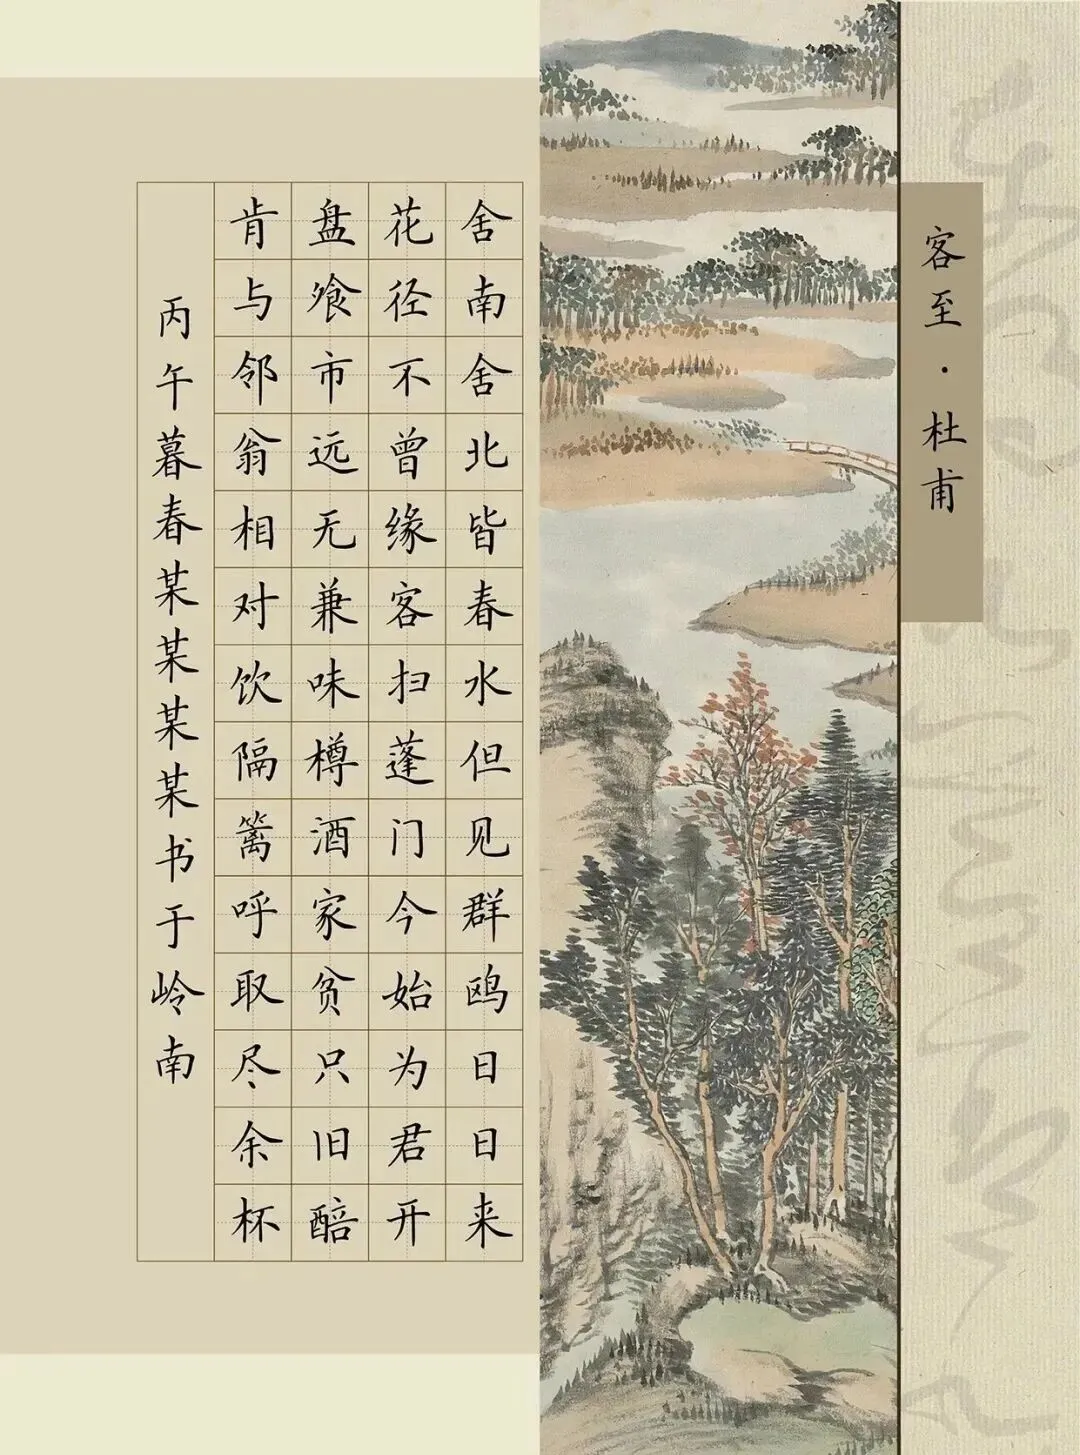 客至·杜甫
舍南舍北皆春水但见群鸥日日来
花径不曾缘客扫蓬门今始为君开
盘飧市远无兼味樽酒家贫只旧醅
肯与邻翁相对饮隔篱呼取尽余杯
丙午暮春某某某某书于岭南